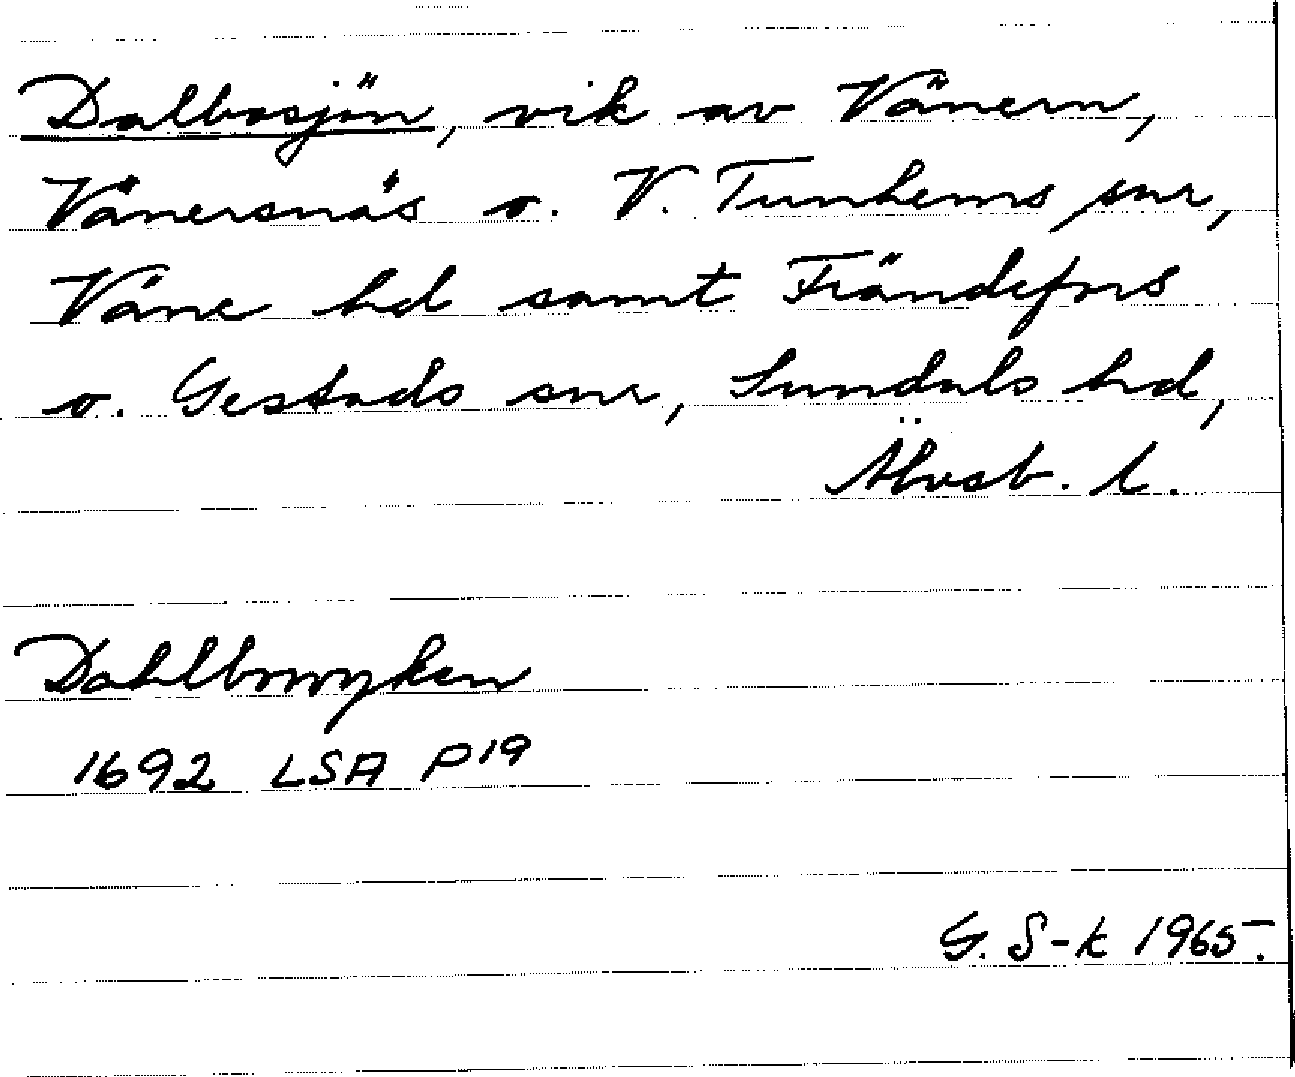 Dalbosjön, vik av Vänern,
Vänersnäs o. V. Tunhems snr,
Väne hd samt Frändefors
o. Gestads snr, Sundals hd,
Älvsb. l.
Dahlbowyken
1692 LSA P19
G. S-k 1965.